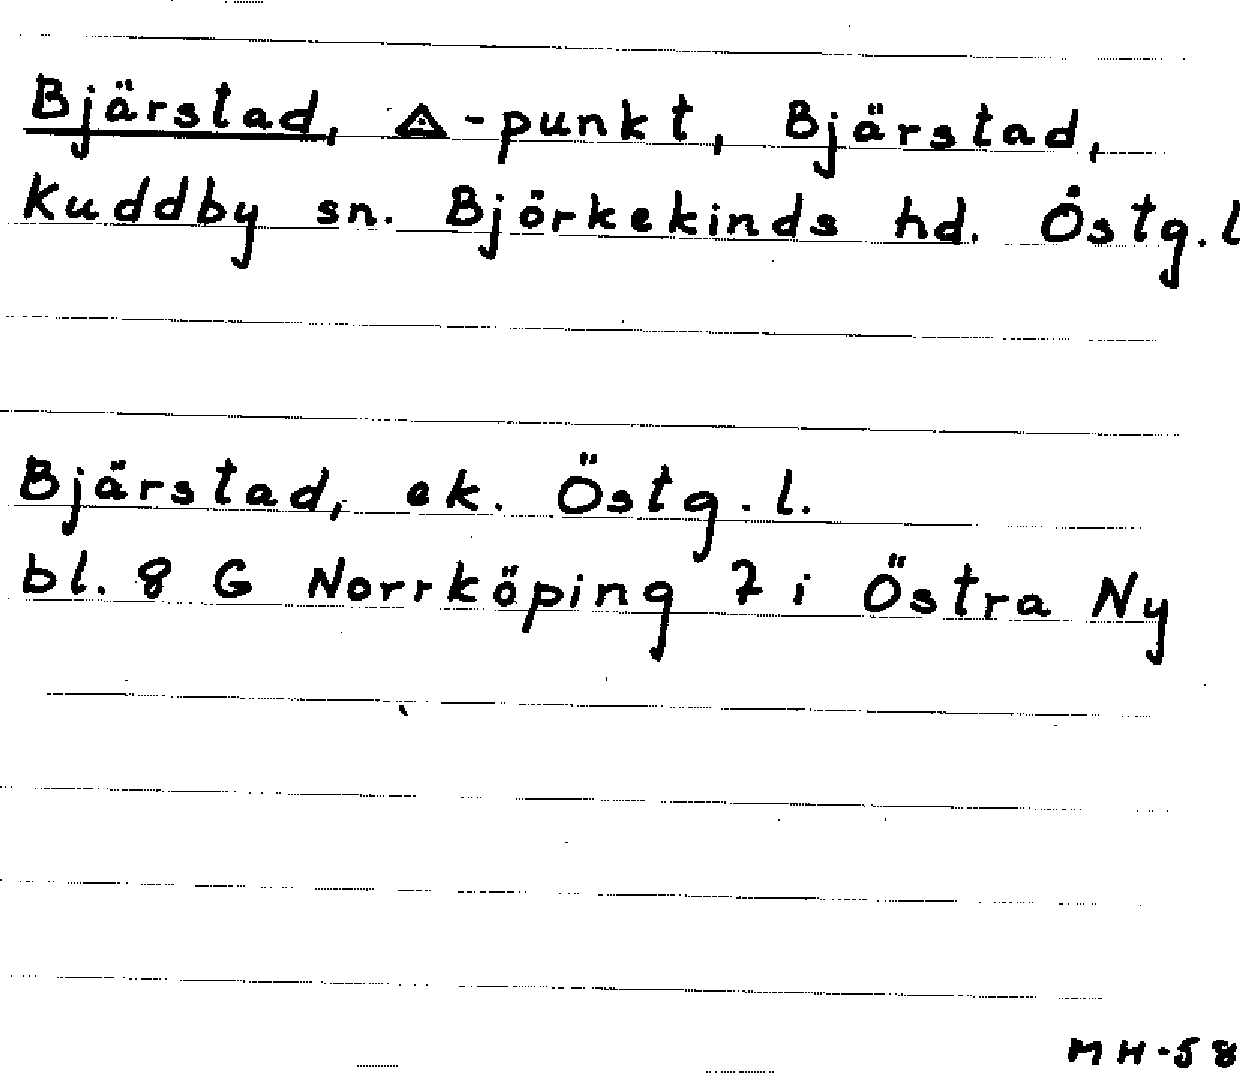 Bjärstad, △-punkt, Bjärstad,
Kuddby sn. Björkekinds hd. Östg.l
Bjärstad, ek. Östg.l.
bl. 8 G Norrköping 7 i Östra Ny
MH-58